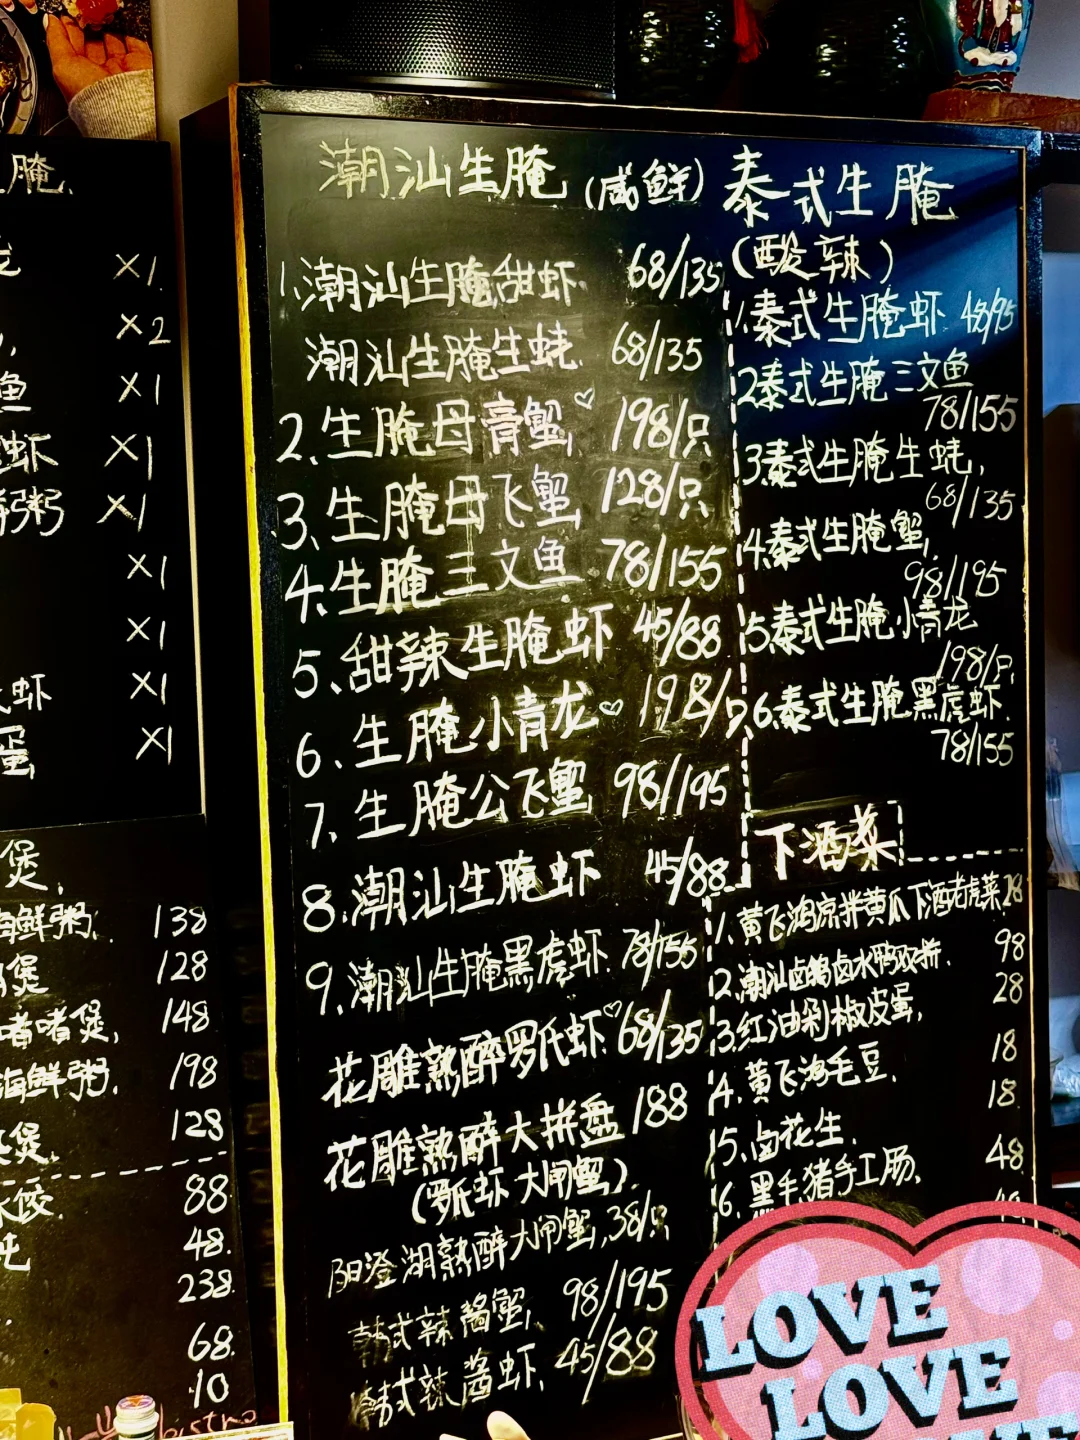 腌.
×1.
×2
鱼 ×1
虾 ×1
粥 ×1
×1
×1
虾 ×1
蛋 ×1
煲.
海鲜粥. 138
煲 128
啫啫煲, 148
海鲜粥. 198
煲. 128
水饺. 88
48.
238.
68.
10
bistro
潮汕生腌 (咸鲜)
1.潮汕生腌甜虾. 68/135
潮汕生腌生蚝. 68/135
2.生腌母膏蟹. 198/只
3、生腌母飞蟹 128/只
4.生腌三文鱼 78/155
5、甜辣生腌虾 45/88
6、生腌小青龙 198/只
7、生腌公飞蟹 98/195
8.潮汕生腌虾 45/88
9.潮汕生腌黑虎虾. 78/155
花雕熟醉罗氏虾. 68/135
花雕熟醉大拼盘 188
(罗氏虾 大闸蟹).
阳澄湖熟醉大闸蟹, 38/只
韩式辣酱蟹. 98/195
韩式辣酱虾. 45/88
泰式生腌
(酸辣)
1.泰式生腌虾
2泰式生腌三文鱼
78/155
3.泰式生腌生蚝,
68/135
4.泰式生腌蟹.
98/195
5泰式生腌小青龙
198/只.
6.泰式生腌黑虎虾.
78/155
下酒菜
1.黄飞鸿凉拌黄瓜 下酒老虎菜 28
2.潮汕卤鹅卤水鸭双拼. 98
3.红油剁椒皮蛋, 28
4.黄飞鸿毛豆. 18
5.卤花生. 18
6.黑毛猪手工肠. 48
LOVE
LOVE